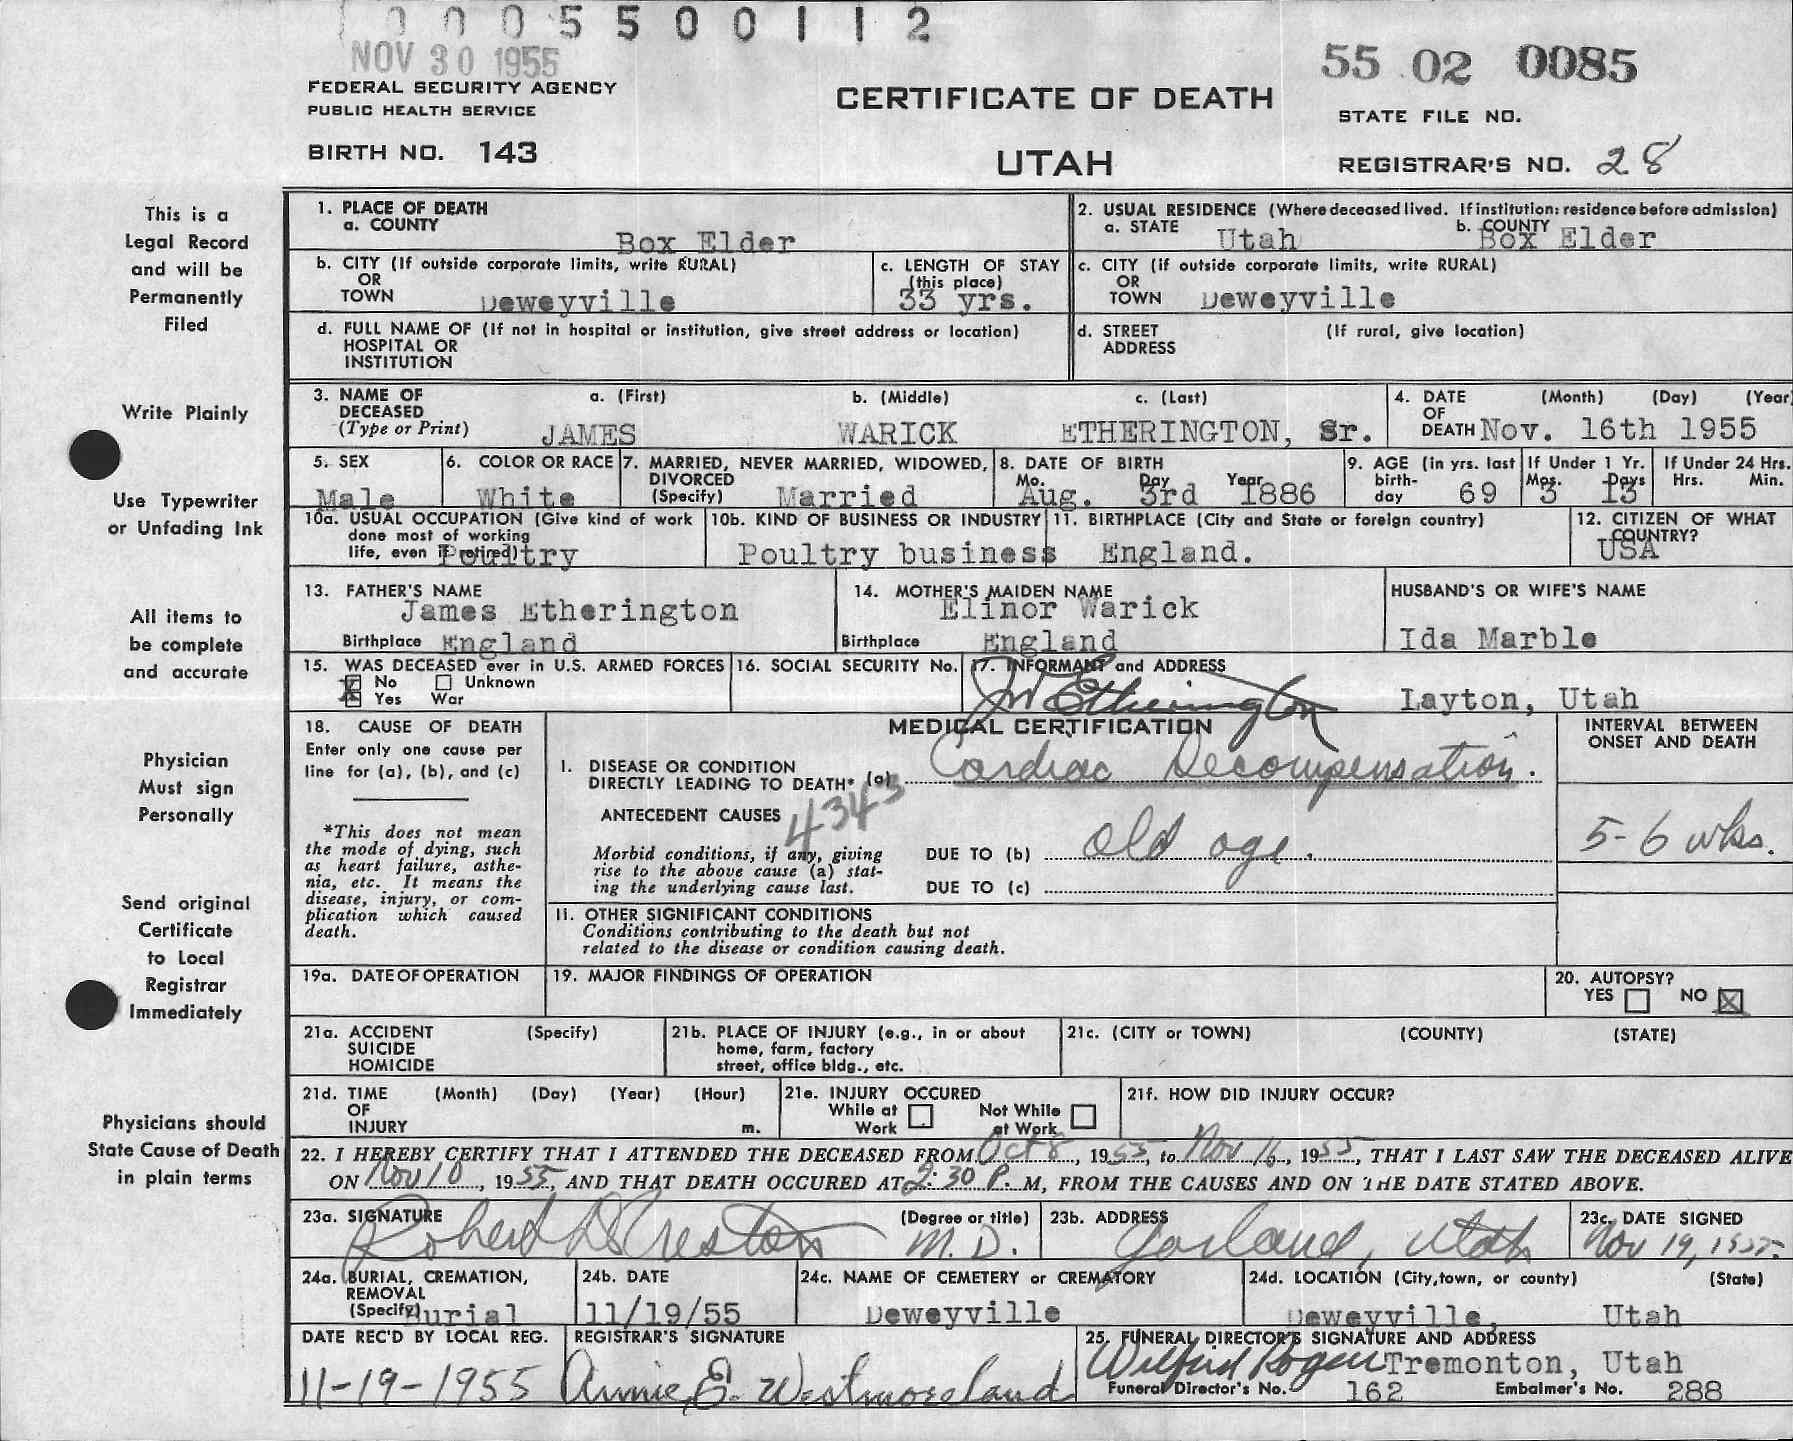 0 0 0 5 5 0 0 1 1 2
NOV 30 1955
55 02 0085
FEDERAL SECURITY AGENCY
PUBLIC HEALTH SERVICE
CERTIFICATE OF DEATH
STATE FILE NO.
BIRTH NO. 143
UTAH
REGISTRAR'S NO. 28
This is a
Legal Record
and will be
Permanently
Filed
Write Plainly
Use Typewriter
or Unfading Ink
All items to
be complete
and accurate
Physician
Must sign
Personally
Send original
Certificate
to Local
Registrar
Immediately
Physicians should
State Cause of Death
in plain terms
1. PLACE OF DEATH
a. COUNTY
Box Elder
2. USUAL RESIDENCE (Where deceased lived. If institution: residence before admission)
a. STATE Utah b. COUNTY Box Elder
b. CITY (If outside corporate limits, write RURAL)
OR
TOWN Deweyville
c. LENGTH OF STAY
(this place)
33 yrs.
c. CITY (if outside corporate limits, write RURAL)
OR
TOWN Deweyville
d. FULL NAME OF (If not in hospital or institution, give street address or location)
HOSPITAL OR
INSTITUTION
d. STREET (If rural, give location)
ADDRESS
3. NAME OF DECEASED (Type or Print)
a. (First) b. (Middle) c. (Last)
JAMES WARICK ETHERINGTON, Sr.
4. DATE OF DEATH (Month) (Day) (Year)
Nov. 16th 1955
5. SEX
Male
6. COLOR OR RACE
White
7. MARRIED, NEVER MARRIED, WIDOWED,
DIVORCED
(Specify) Married
8. DATE OF BIRTH
Mo. Day Year
Aug. 3rd 1886
9. AGE (in yrs. last
birth-
day 69
If Under 1 Yr.
Mos. Days
3 13
If Under 24 Hrs.
Hrs. Min.
10a. USUAL OCCUPATION (Give kind of work
done most of working
life, even if retired) Poultry
10b. KIND OF BUSINESS OR INDUSTRY
Poultry business
11. BIRTHPLACE (City and State or foreign country)
England.
12. CITIZEN OF WHAT
COUNTRY?
USA
13. FATHER'S NAME
James Etherington
Birthplace England
14. MOTHER'S MAIDEN NAME
Elinor Warick
Birthplace England
HUSBAND'S OR WIFE'S NAME
Ida Marble
15. WAS DECEASED ever in U.S. ARMED FORCES
No Unknown
Yes War
16. SOCIAL SECURITY No.
17. INFORMANT and ADDRESS
JW Etherington Layton, Utah
18. CAUSE OF DEATH
Enter only one cause per
line for (a), (b), and (c)
*This does not mean
the mode of dying, such
as heart failure, asthe-
nia, etc. It means the
disease, injury, or com-
plication which caused
death.
MEDICAL CERTIFICATION
INTERVAL BETWEEN
ONSET AND DEATH
I. DISEASE OR CONDITION
DIRECTLY LEADING TO DEATH* (a) Cardiac Decompensation.
ANTECEDENT CAUSES
4343
Morbid conditions, if any, giving
rise to the above cause (a) stat-
ing the underlying cause last.
DUE TO (b) Old age.
5-6 wks.
DUE TO (c)
II. OTHER SIGNIFICANT CONDITIONS
Conditions contributing to the death but not
related to the disease or condition causing death.
19a. DATE OF OPERATION
19. MAJOR FINDINGS OF OPERATION
20. AUTOPSY?
YES NO
21a. ACCIDENT (Specify)
SUICIDE
HOMICIDE
21b. PLACE OF INJURY (e.g., in or about
home, farm, factory
street, office bldg., etc.
21c. (CITY or TOWN) (COUNTY) (STATE)
21d. TIME (Month) (Day) (Year) (Hour)
OF
INJURY m.
21e. INJURY OCCURED
While at Work Not While at Work
21f. HOW DID INJURY OCCUR?
22. I HEREBY CERTIFY THAT I ATTENDED THE DECEASED FROM Oct 8, 1955, to Nov 16, 1955, THAT I LAST SAW THE DECEASED ALIVE
ON Nov 10, 1955, AND THAT DEATH OCCURED AT 2:30 P. M, FROM THE CAUSES AND ON THE DATE STATED ABOVE.
23a. SIGNATURE (Degree or title)
Robert D Creston M.D.
23b. ADDRESS
Garland, Utah
23c. DATE SIGNED
Nov 19, 1955.
24a. BURIAL, CREMATION,
REMOVAL
(Specify) Burial
24b. DATE
11/19/55
24c. NAME OF CEMETERY or CREMATORY
Deweyville
24d. LOCATION (City, town, or county) (State)
Deweyville, Utah
DATE REC'D BY LOCAL REG.
11-19-1955
REGISTRAR'S SIGNATURE
Annie E. Westmoreland
25. FUNERAL DIRECTOR'S SIGNATURE AND ADDRESS
Wilford Rogers Tremonton, Utah
Funeral Director's No. 162 Embalmer's No. 288